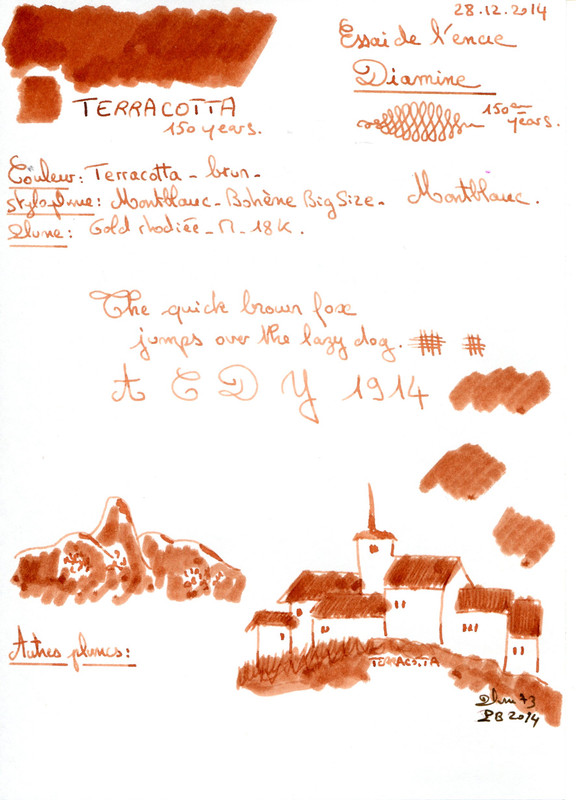 28.12.2014
Essai de l'encre
Diamine
TERRACOTTA
150 years.
150 years.
Couleur: Terracotta - brun -
stylo plume: Montblanc - Bohène Big Size - Montblanc.
Plume: Gold rhodiée - M - 18K.
The quick brown fox
jumps over the lazy dog.
A C D Y 1914
Autres plumes:
TERRACOTTA
73
PB 2014